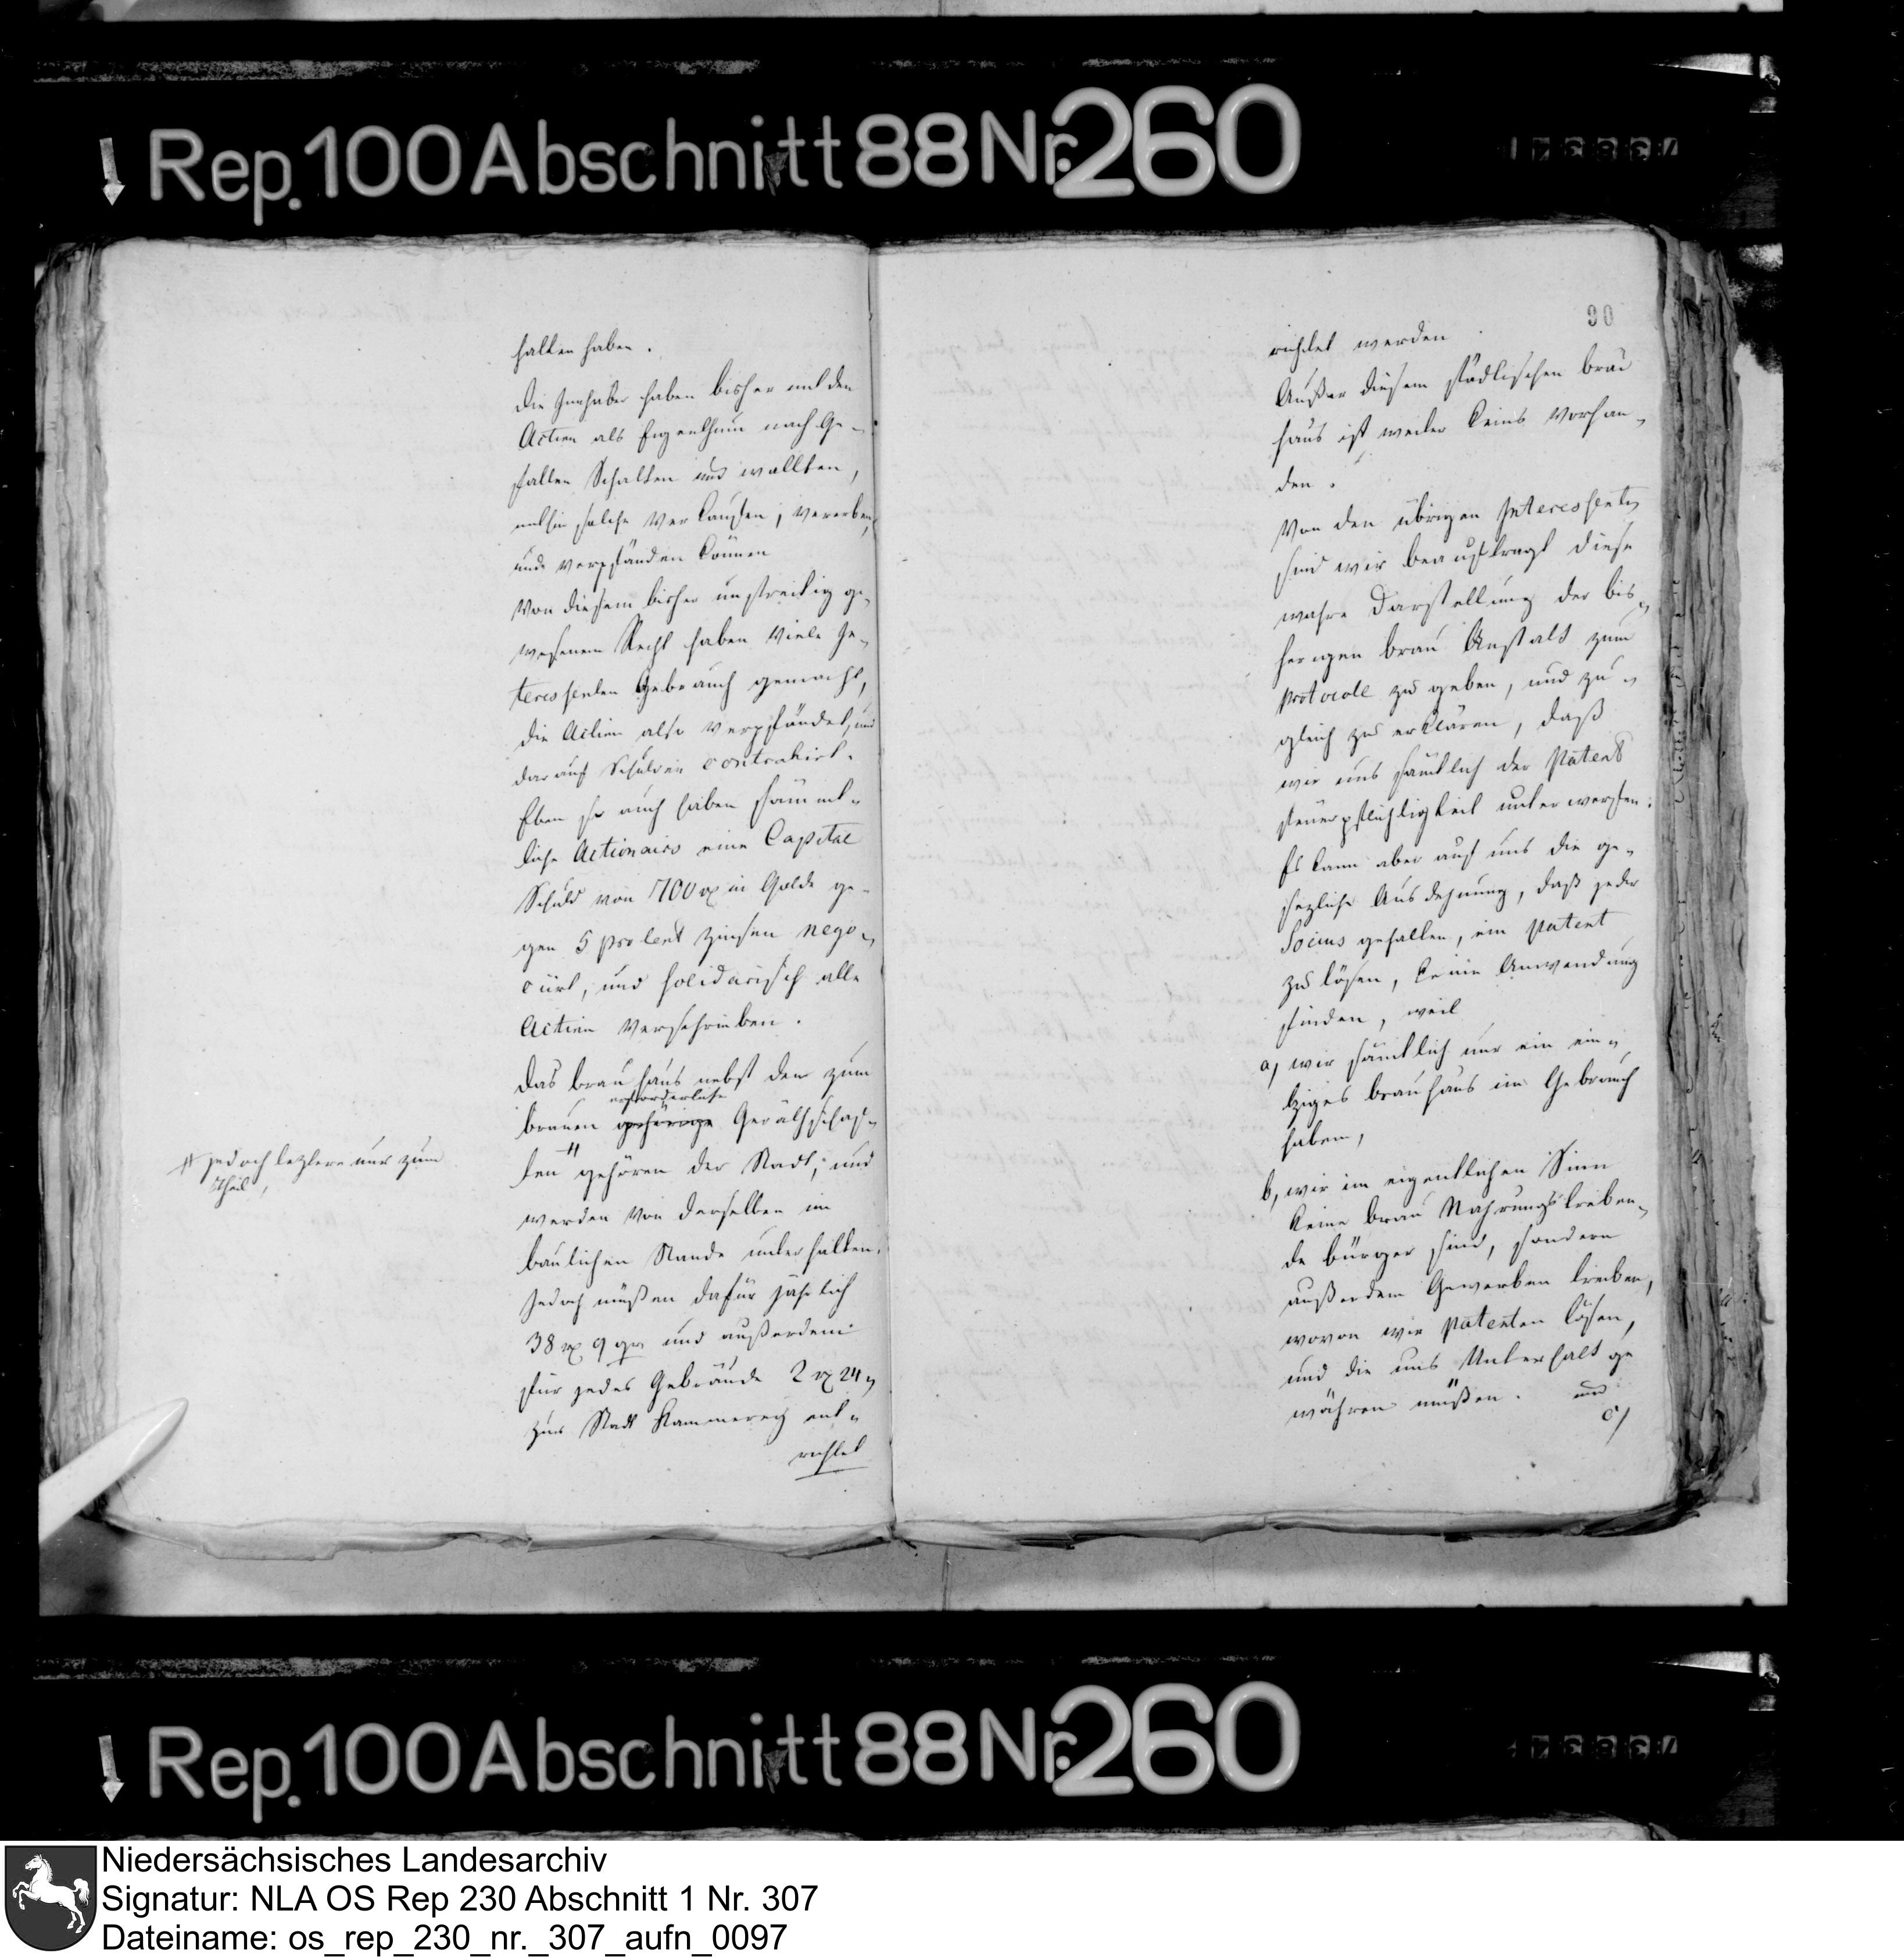 Rep. 100 Abschnitt 88 Nr. 260
halten haben.
Die Inhaber haben bisher mit den
Actien als Eigenthum nach Ge-
fallen Schalten und wallten,
mithin solche verkaufen, vererben,
und verpfänden können
Von diesem bisher unstreitig ge-
wesenem Recht haben viele In-
teressenten Gebrauch gemacht,
die Actien also verpfändet, und
darauf Schulden contrahirt.
Eben so auch haben sämmt-
liche Actionairs eine Capital
Schuld von 1700 rx in Golde ge-
gen 5 pro Cent Zinsen nego-
ciirt, und solidarisch alle
Actien verschrieben.
Das brau haus nebst den zum
erforderliche
brauen gehörige Geräthschaf-
ten # gehören der Stadt, und
# jedoch leztere nur zum
Theil,
werden von derselben im
baulichen Stande unterhalten,
Jedoch müßen dafür jährlich
38 rx 9 gr und außerdem
für jedes Gebräude 2 rx 24
zur Stadt Kammerey ent-
richtet
90
richtet werden
Außer diesem städtischen brau
haus ist weiter keins vorhan-
den.
Von den übrigen Interessenten
sind wir beauftragt diese
wahre Darstellung der bis-
herigen brau Anstalt zum
protocoll zu geben, und zu-
gleich zu erklären, daß
wir uns sämtlich der Patent
steuerpflichtigkeit unterwerfen.
Es kann aber auf uns die ge-
sezliche Ausdehnung, daß jeder
Socius gehalten, ein patent
zu lösen, keine Anwendung
finden, weil
a) wir sämtlich nur ein ein-
ziges brauhaus im Gebrauch
haben,
b, wir im eigentlichen Sinn
keine brau Nahrungstreiben-
de bürger sind, sondern
außerdem Gewerben treiben,
wovon wir patenten lösen,
und die uns Unterhalt ge
währen müßen. und
c)
Rep. 100 Abschnitt 88 Nr. 260
Niedersächsisches Landesarchiv
Signatur: NLA OS Rep 230 Abschnitt 1 Nr. 307
Dateiname: os_rep_230_nr._307_aufn_0097